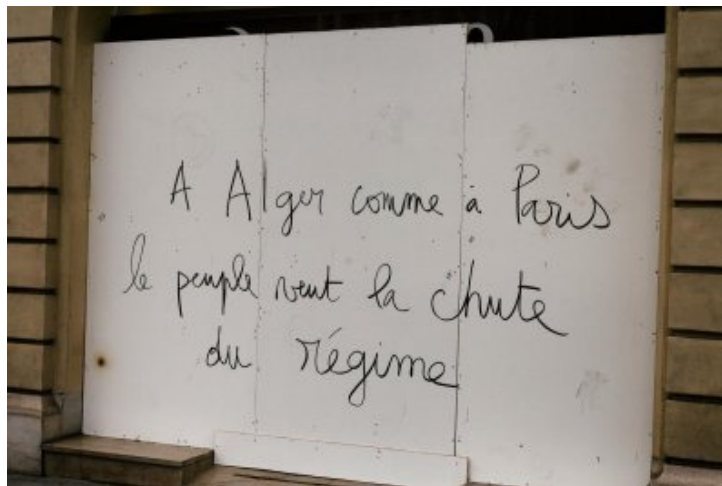 A Alger comme à Paris
le peuple veut la chute
du régime